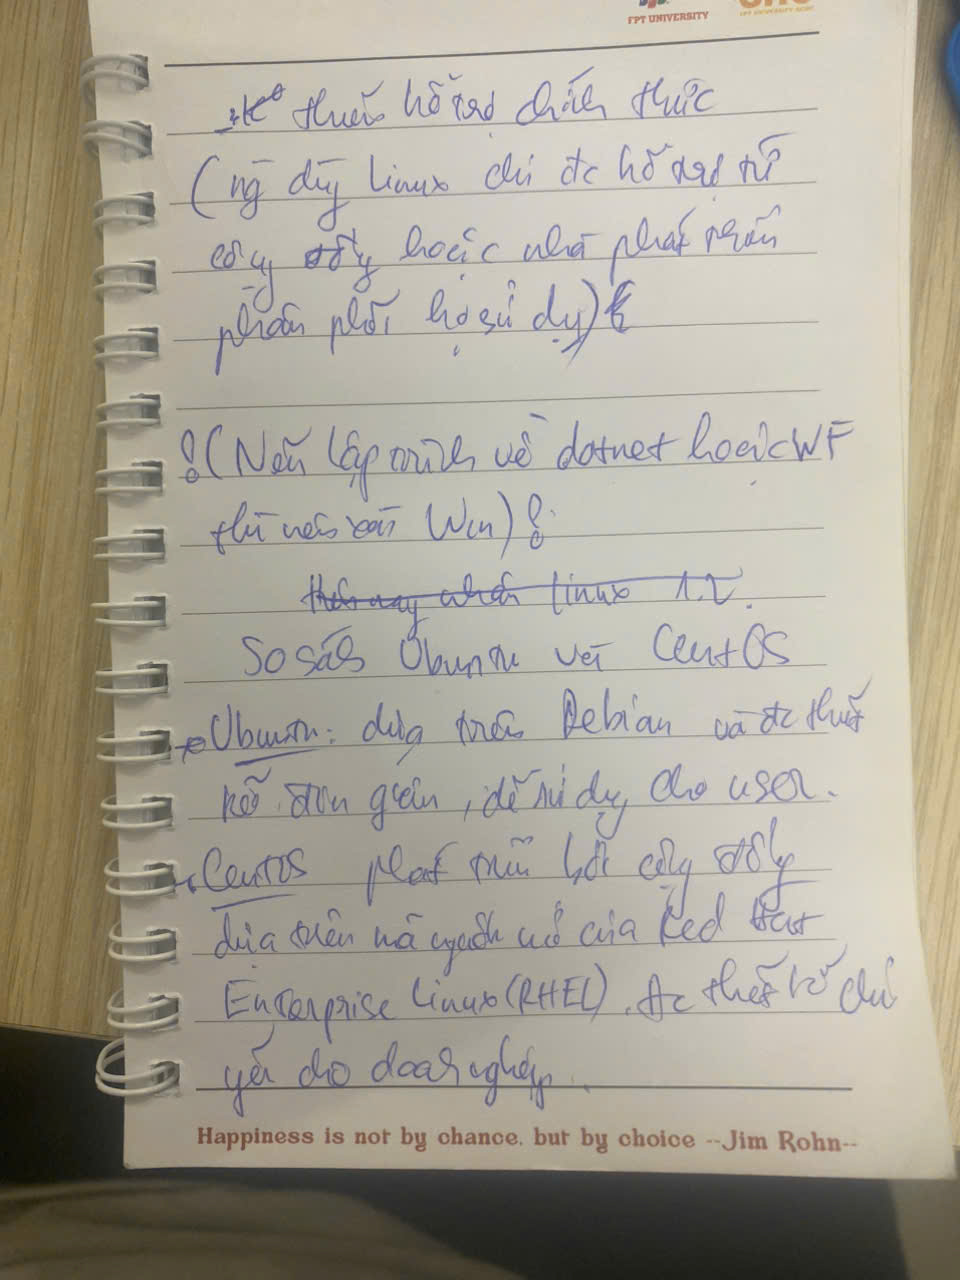 FPT UNIVERSITY
thiếu hỗ trợ chính thức
(ng dùg Linux chỉ đc hỗ trợ từ
cộng đồng hoặc nhà phát triển
phân phối họ sử dụg)
!(Nếu lập trình về dotnet hoặc WF
thì nên xài Win)!
Linux 1.2.
So sánh Ubuntu với CentOS
Ubuntu: dựa trên Debian và đc thiết
kế đơn giản, dễ sử dụg cho user.
CentOS phát triển bởi cộng đồng
dựa trên mã nguồn mở của Red Hat
Enterprise Linux (RHEL). đc thiết kế chủ
yếu cho doanh nghiệp.
Happiness is not by chance, but by choice --Jim Rohn--